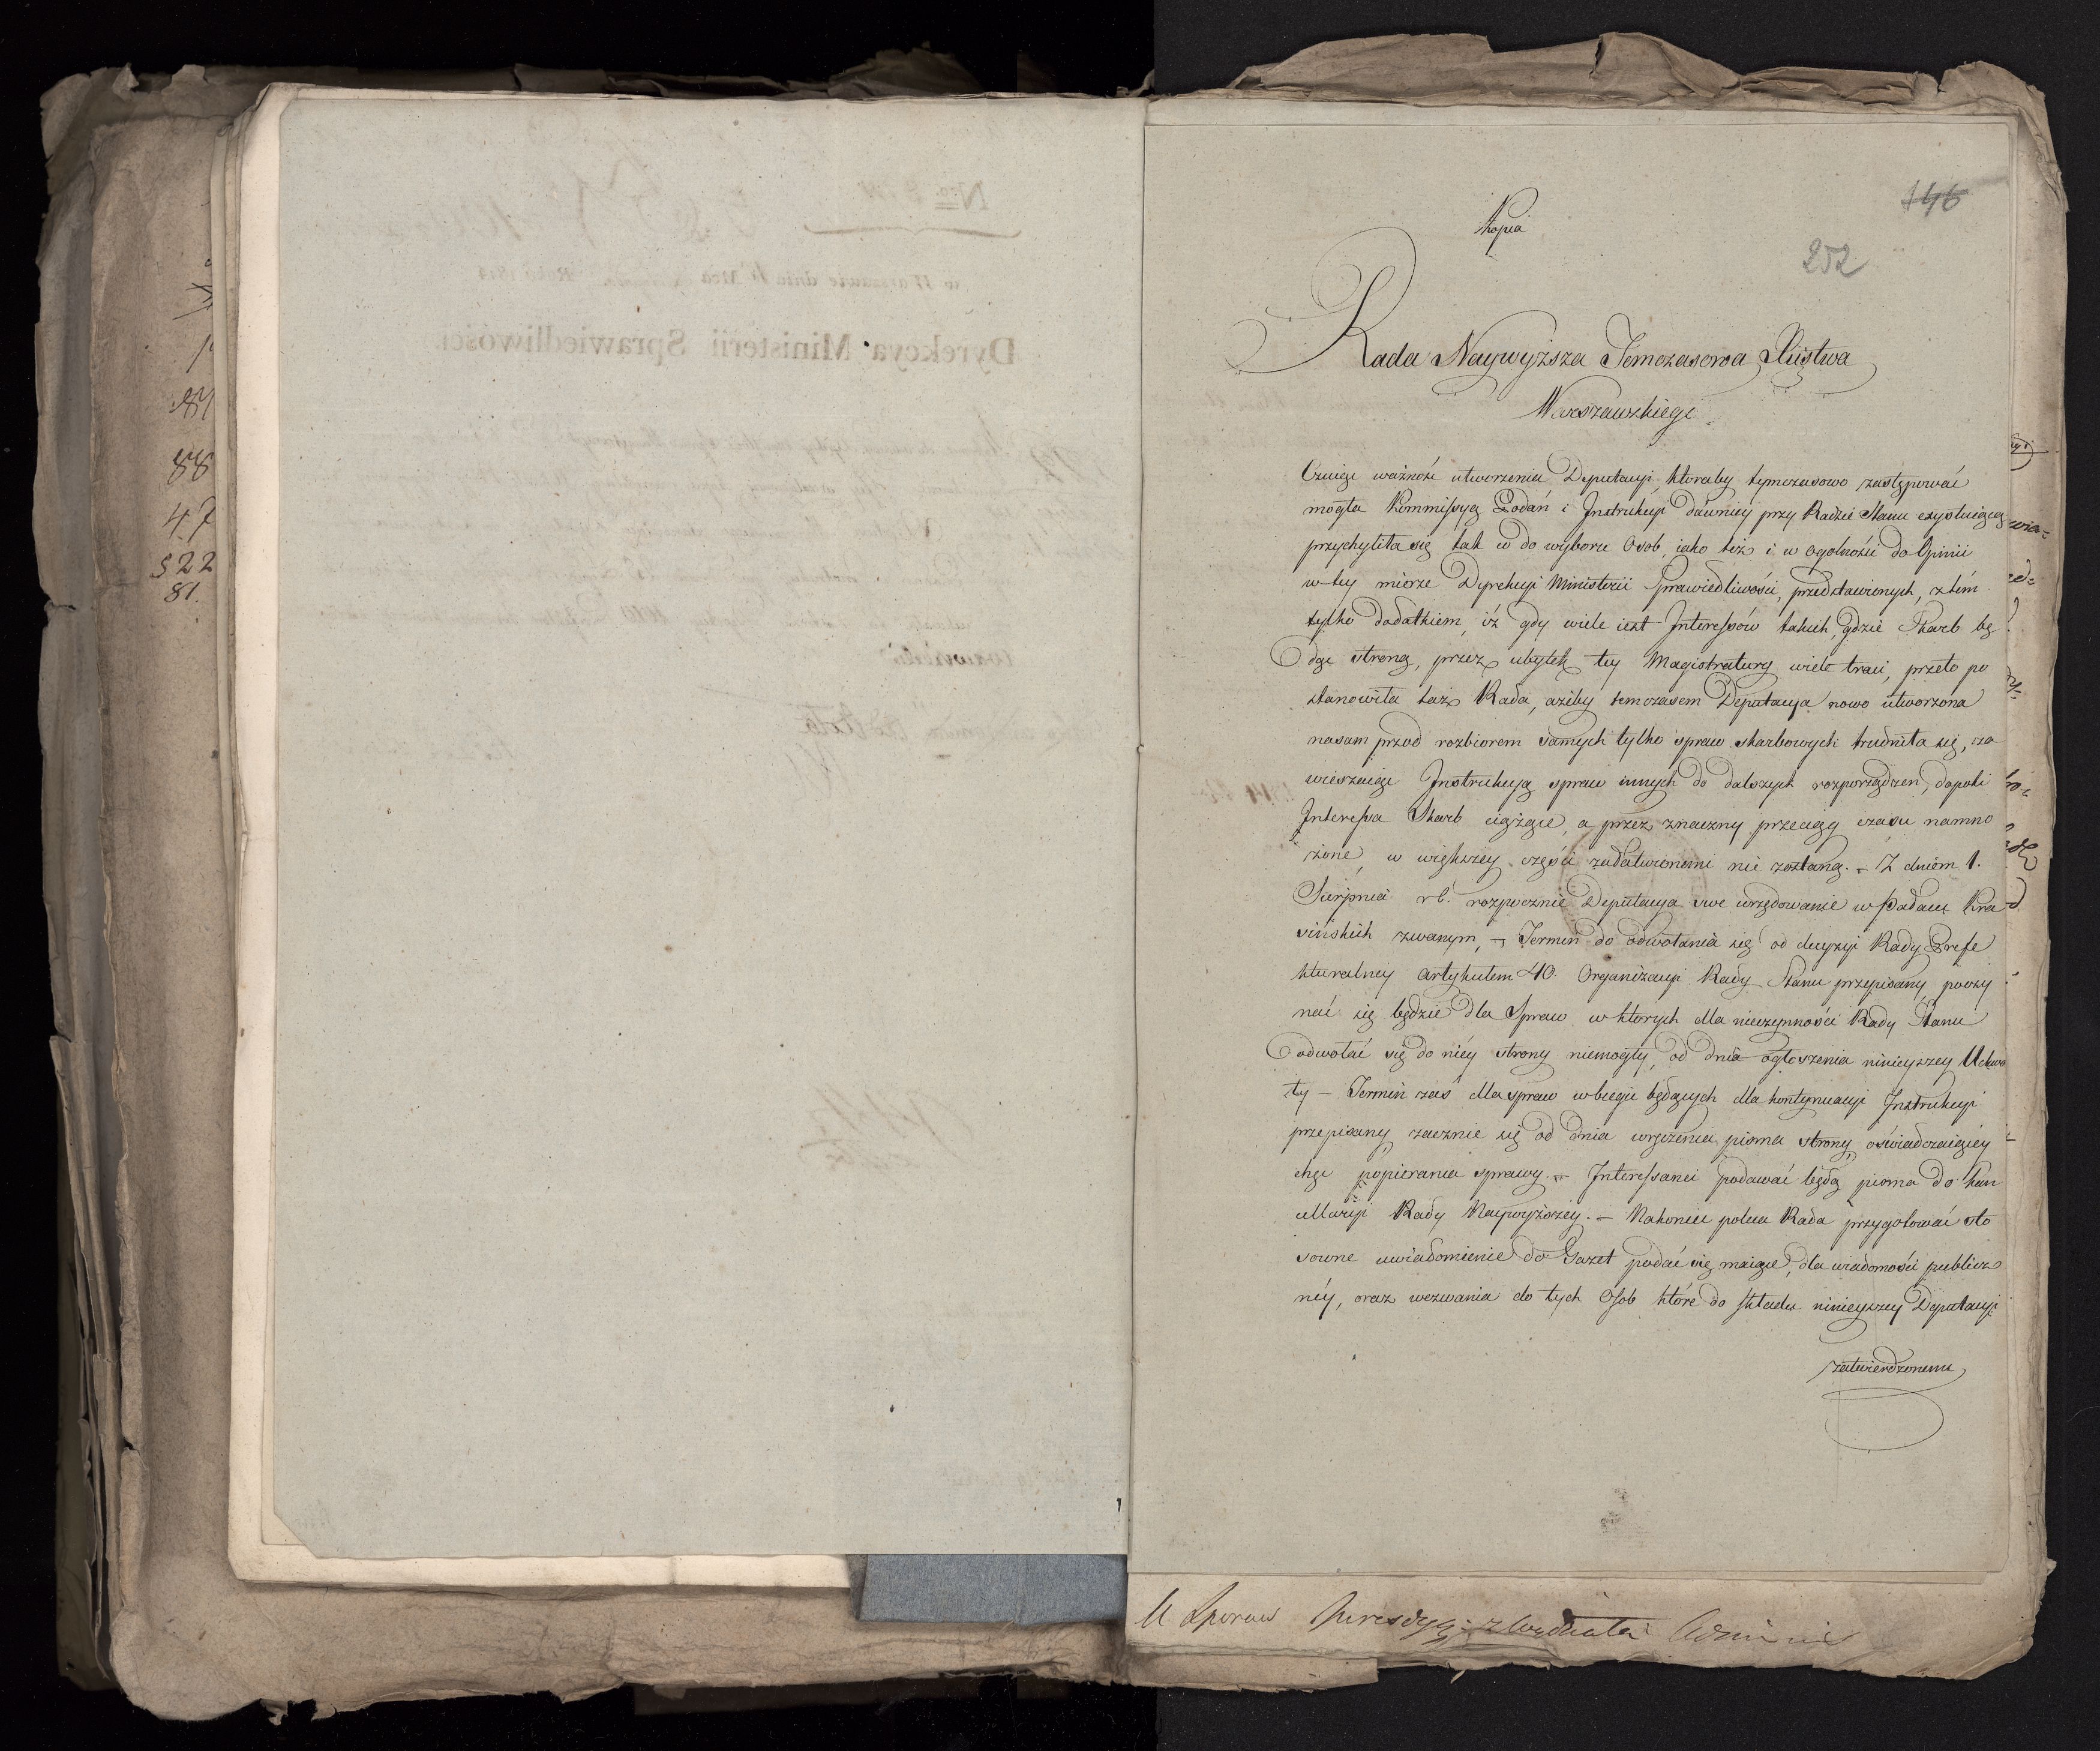 87
88
47
522
81.
146
252
Kopia
Rada Naywyższa Temczasowa Xięstwa
Warszawskiego.
Czuiąc ważność utworzenia Deputacyi, któraby tymczasowo zastępować
mogła Kommissyą Podań i Instrukcyi dawniey przy Radzie Stanu exystuiącą
przychyliła się tak w do wyboru Osob, iako też i w ogolności do Opinii
w tey mierze Dyrekcyi Ministerii Sprawiedliwości, przedstawionych, z tém
tylko dodatkiem, iż gdy wiele iest Interessów takich, gdzie Skarb bę
dąc stroną, przez ubytek tey Magistratury wiele traci, przeto po
stanowiła taż Rada, ażeby temczasem Deputacya nowo utworzona
nasam przod rozbiorem samych tylko spraw skarbowych trudniła się, za
wieszaiąc Instrukcyą spraw innych do dalszych rozporządzeń, dopoki
Interessa Skarb ciążące, a przez znaczny przeciąg czasu namno
żone, w większey części załatwionemi nie zostaną. – Z dniem 1.
Sierpnia r. b. rozpocznie Deputacya swe urzędowanie w Pałacu Kra
sińskich zwanym, – Termin do odwołania się od decyzyi Rady Prefe
kturalney artykułem 40. Organizacyi Rady Stanu przepisany, poczy
nać się będzie dla Spraw w ktorych dla nieczynności Rady Stanu
odwołać się do niéy strony niemogły, od dnia ogłoszenia ninieyszey Uchwa
ły – Termin zaś dla spraw w biegu będących dla kontynuacyi Instrukcyi
przepisany, zacznie się od dnia wręczenia pisma strony, oświadczaiącéy
chęć popierania sprawy. – Interessanci podawać będą pisma do Kan
cellaryi Rady Naywyższéy. – Nakoniec poleca Rada przygotować sto
sowne uwiadomienie do Gazet podać się maiące, dla wiadomości publicz
néy, oraz wezwania do tych Osob które do składu ninieyszey Deputacyi
zatwierdzonemu